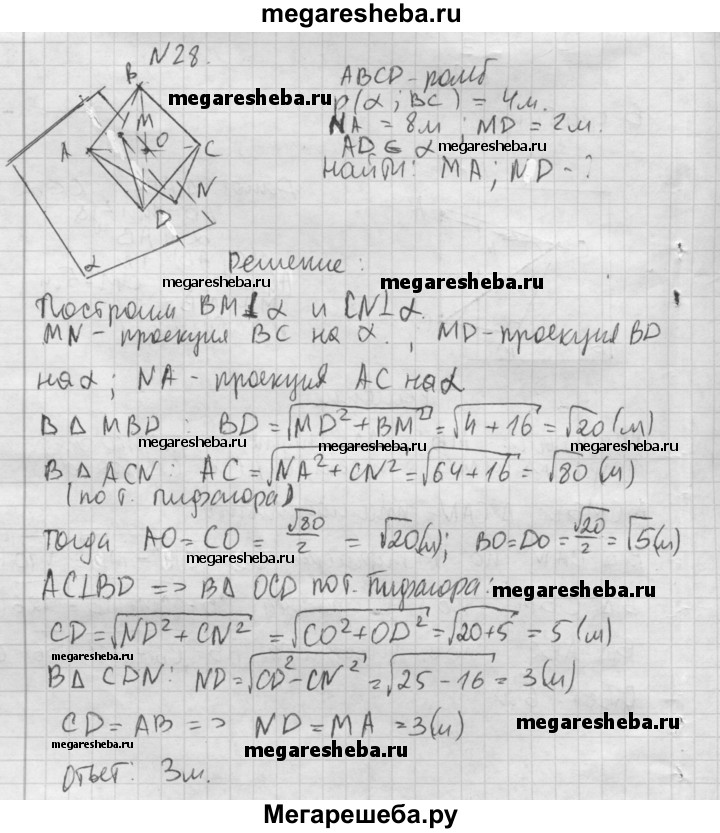 megaresheba.ru
N28.
B
M
O
A
C
N
D
α
ABCD - ромб
megaresheba.ru
ρ(α; BC) = 4м.
NA = 8м; MD = 2м.
AD ∈ α megaresheba.ru
Найти: MA; ND - ?
Решение:
megaresheba.ru megaresheba.ru
Построим BM⊥α и CN⊥α.
MN - проекция BC на α., MD - проекция BD
megaresheba.ru
на α; NA - проекция AC на α
В Δ MBD: BD = √(MD² + BM²) = √(4 + 16) = √20 (м)
megaresheba.ru megaresheba.ru
В Δ ACN: AC = √(NA² + CN²) = √(64 + 16) = √80 (м)
(по т. Пифагора)
Тогда AO = CO = √80/2 = √20 (м); BO = DO = √20/2 = √5 (м)
megaresheba.ru
AC⊥BD => В Δ OCD по т. Пифагора:
megaresheba.ru
CD = √(ND² + CN²) = √(CO² + OD²) = √(20+5) = 5 (м)
megaresheba.ru
В Δ CDN: ND = √(CD² - CN²) = √(25 - 16) = 3 (м)
megaresheba.ru
CD = AB => ND = MA = 3 (м)
megaresheba.ru
megaresheba.ru
megaresheba.ru
Ответ: 3м.
Мегарешеба.ру